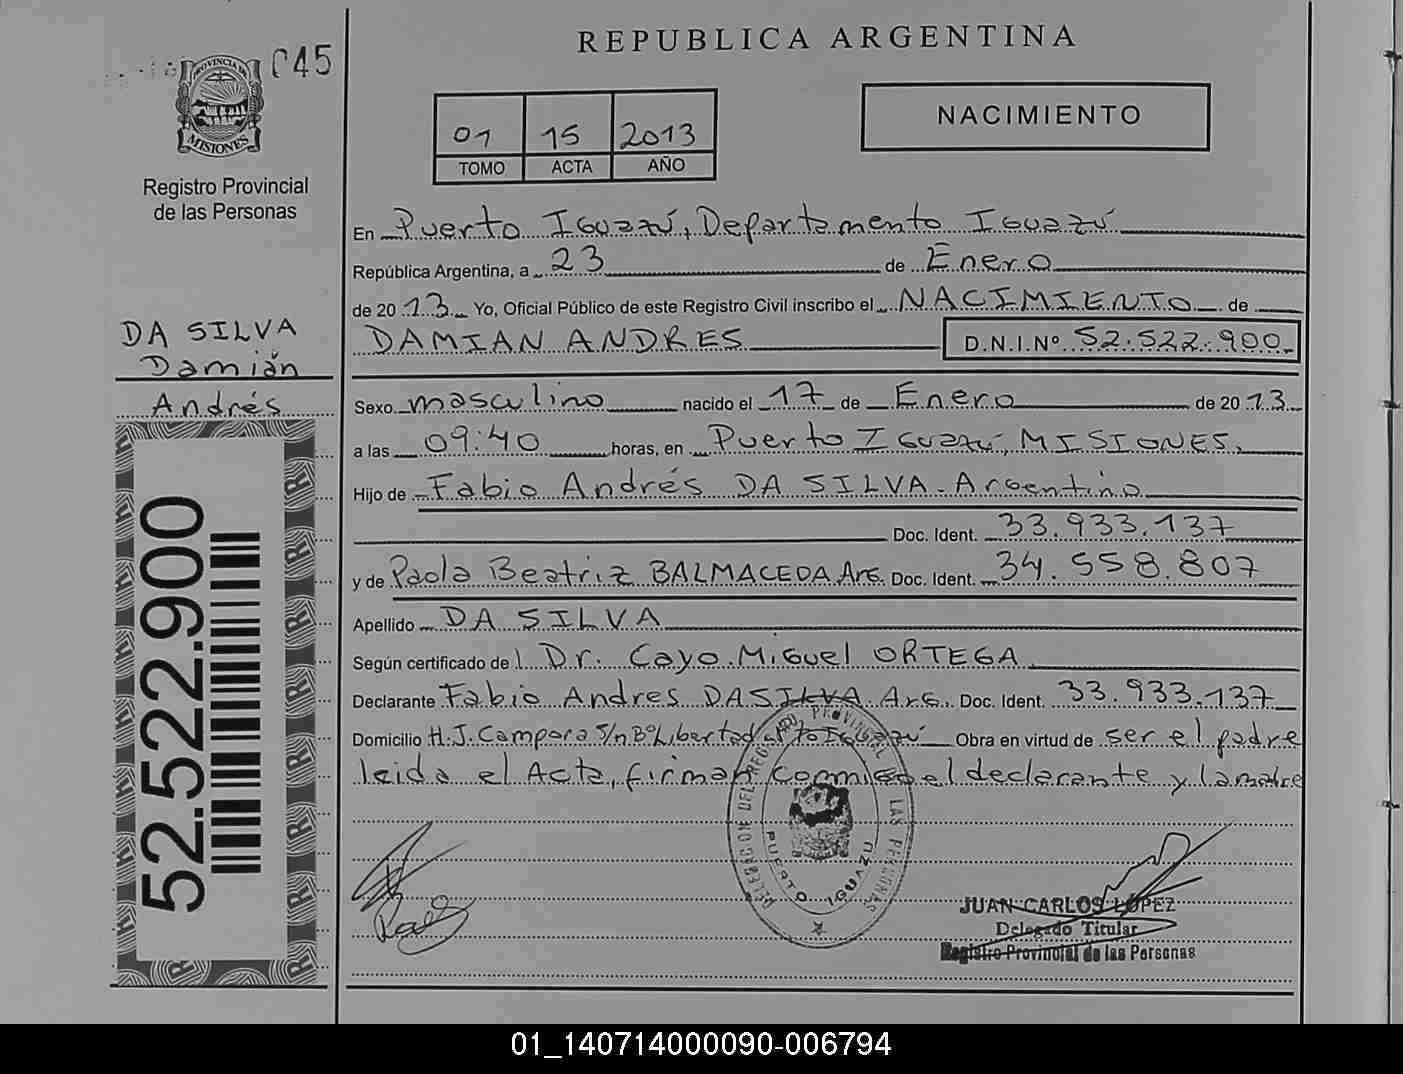 045
PROVINCIA DE
MISIONES
Registro Provincial
de las Personas
DA SILVA
Damián
Andrés
52.522.900
REPUBLICA ARGENTINA
01 15 2013
TOMO ACTA AÑO
NACIMIENTO
En Puerto Iguazú, Departamento Iguazú
República Argentina, a 23 de Enero
de 20 13 Yo, Oficial Público de este Registro Civil inscribo el NACIMIENTO de
DAMIAN ANDRES D.N.I.Nº 52.522.900
Sexo masculino nacido el 17 de Enero de 20 13
a las 09:40 horas, en Puerto Iguazú, MISIONES,
Hijo de Fabio Andrés DA SILVA-Argentino
Doc. Ident. 33.933.137
y de Paola Beatriz BALMACEDA Arg. Doc. Ident. 34.558.807
Apellido DA SILVA
Según certificado del Dr. Cayo Miguel ORTEGA
Declarante Fabio Andres DASILVA Arg. Doc. Ident. 33.933.137
Domicilio H.J. Campora S/n Bº Libertad Pto Iguazú Obra en virtud de ser el padre
leida el Acta, firman conmigo el declarante y la madre
DELEGACION DEL REGISTRO PROVINCIAL DE LAS PERSONAS
PUERTO IGUAZU
JUAN CARLOS LÓPEZ
Delegado Titular
Registro Provincial de las Personas
01_140714000090-006794